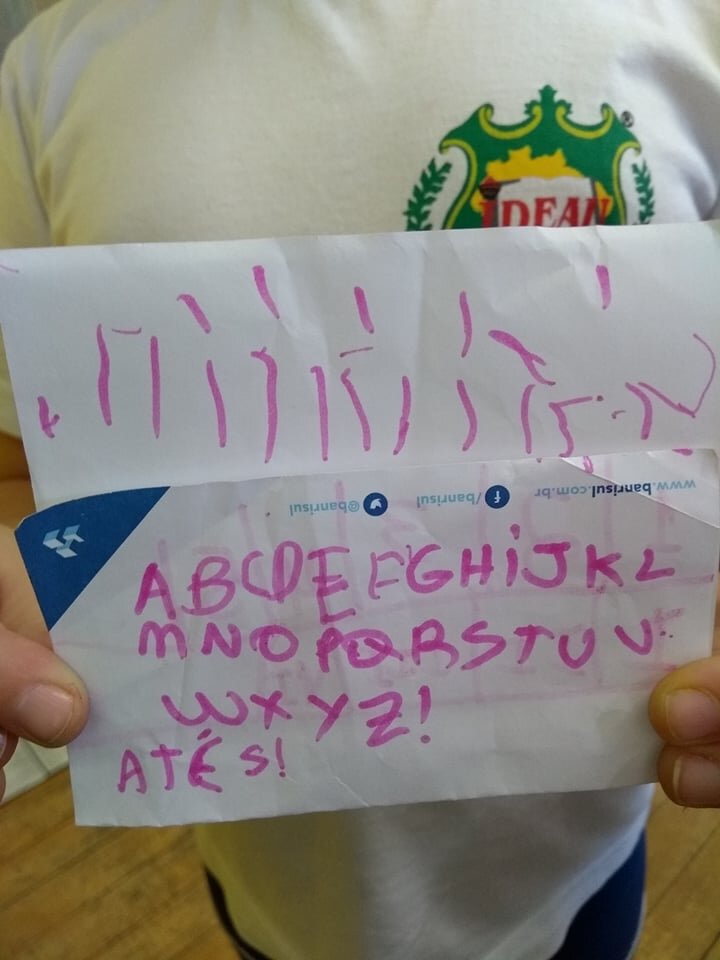 IDEAU
www.banrisul.com.br /banrisul @banrisul
ABCDEFGHiJKL
MNOPQRSTUV
WXYZ!
ATÉ S!